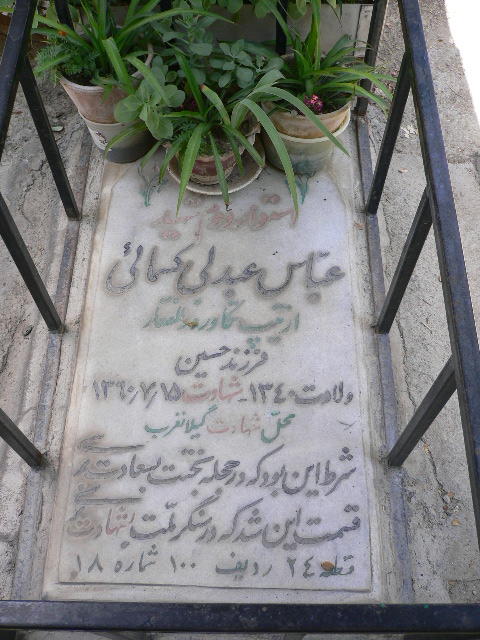 استوار دوم شهید
عباس عبدلی کسائی
از تیپ تکاور ذوالفقار
فرزند حسین
ولادت ۱۳۴۰ - شهادت ۱۳۶۰/۷/۱۵
محل شهادت گیلانغرب
شرط این بود که در حجله بختت بسعادت برسی
قسمت این شد که در سنگر ملت بشهادت برسی
قطعه ۲۴ ردیف ۱۰۰ شماره ۱۸